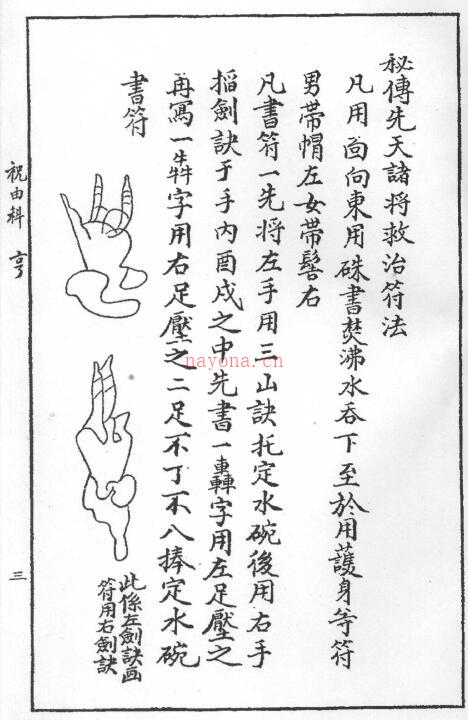 秘傳先天諸將救治符法
凡用面向東用硃書焚沸水吞下至於用護身等符
男帶帽左女帶髻右
凡書符一先將左手用三山訣托定水碗後用右手
搯劍訣于手內酉戌之中先書一轟字用左足壓之
再寫一犇字用右足壓之二足不丁不八捧定水碗
書符
此係左劍訣画
符用右劍訣
祝由科 亨
三
nayona.cn